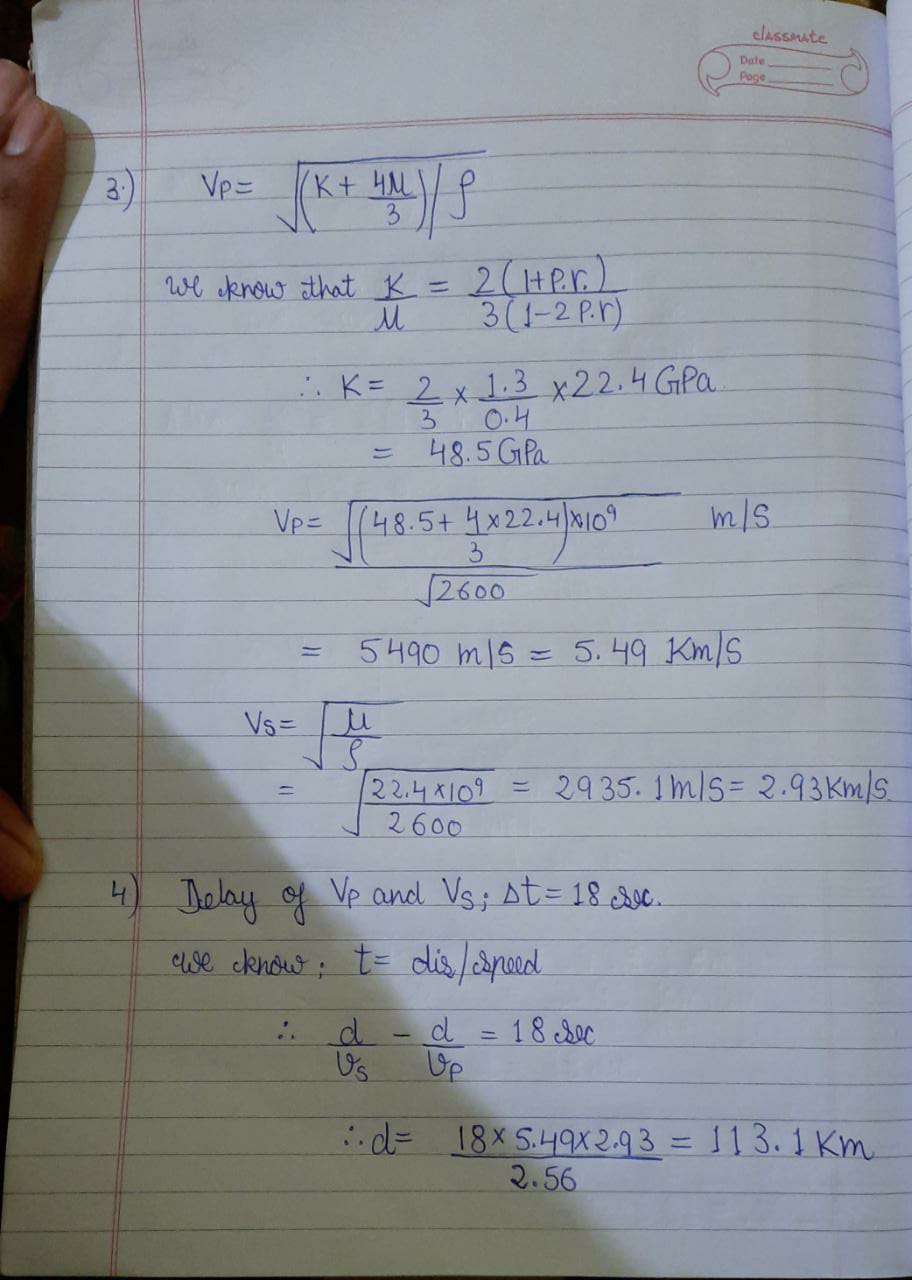 classmate
Date
Page
3.) Vp = √(K + 4μ/3)/ρ
we know that K/μ = 2(1+P.r.)/3(1-2P.r)
∴ K = 2/3 × 1.3/0.4 × 22.4 GPa
= 48.5 GPa
Vp = √(48.5 + 4×22.4/3)×10⁹ / √2600 m/s
= 5490 m/s = 5.49 Km/s
Vs = √μ/ρ
= √22.4×10⁹/2600 = 2935.1 m/s = 2.93 Km/s
4) Delay of Vp and Vs; Δt = 18 sec.
we know; t = dis/speed
∴ d/Vs - d/Vp = 18 sec
∴ d = 18×5.49×2.93/2.56 = 113.1 Km